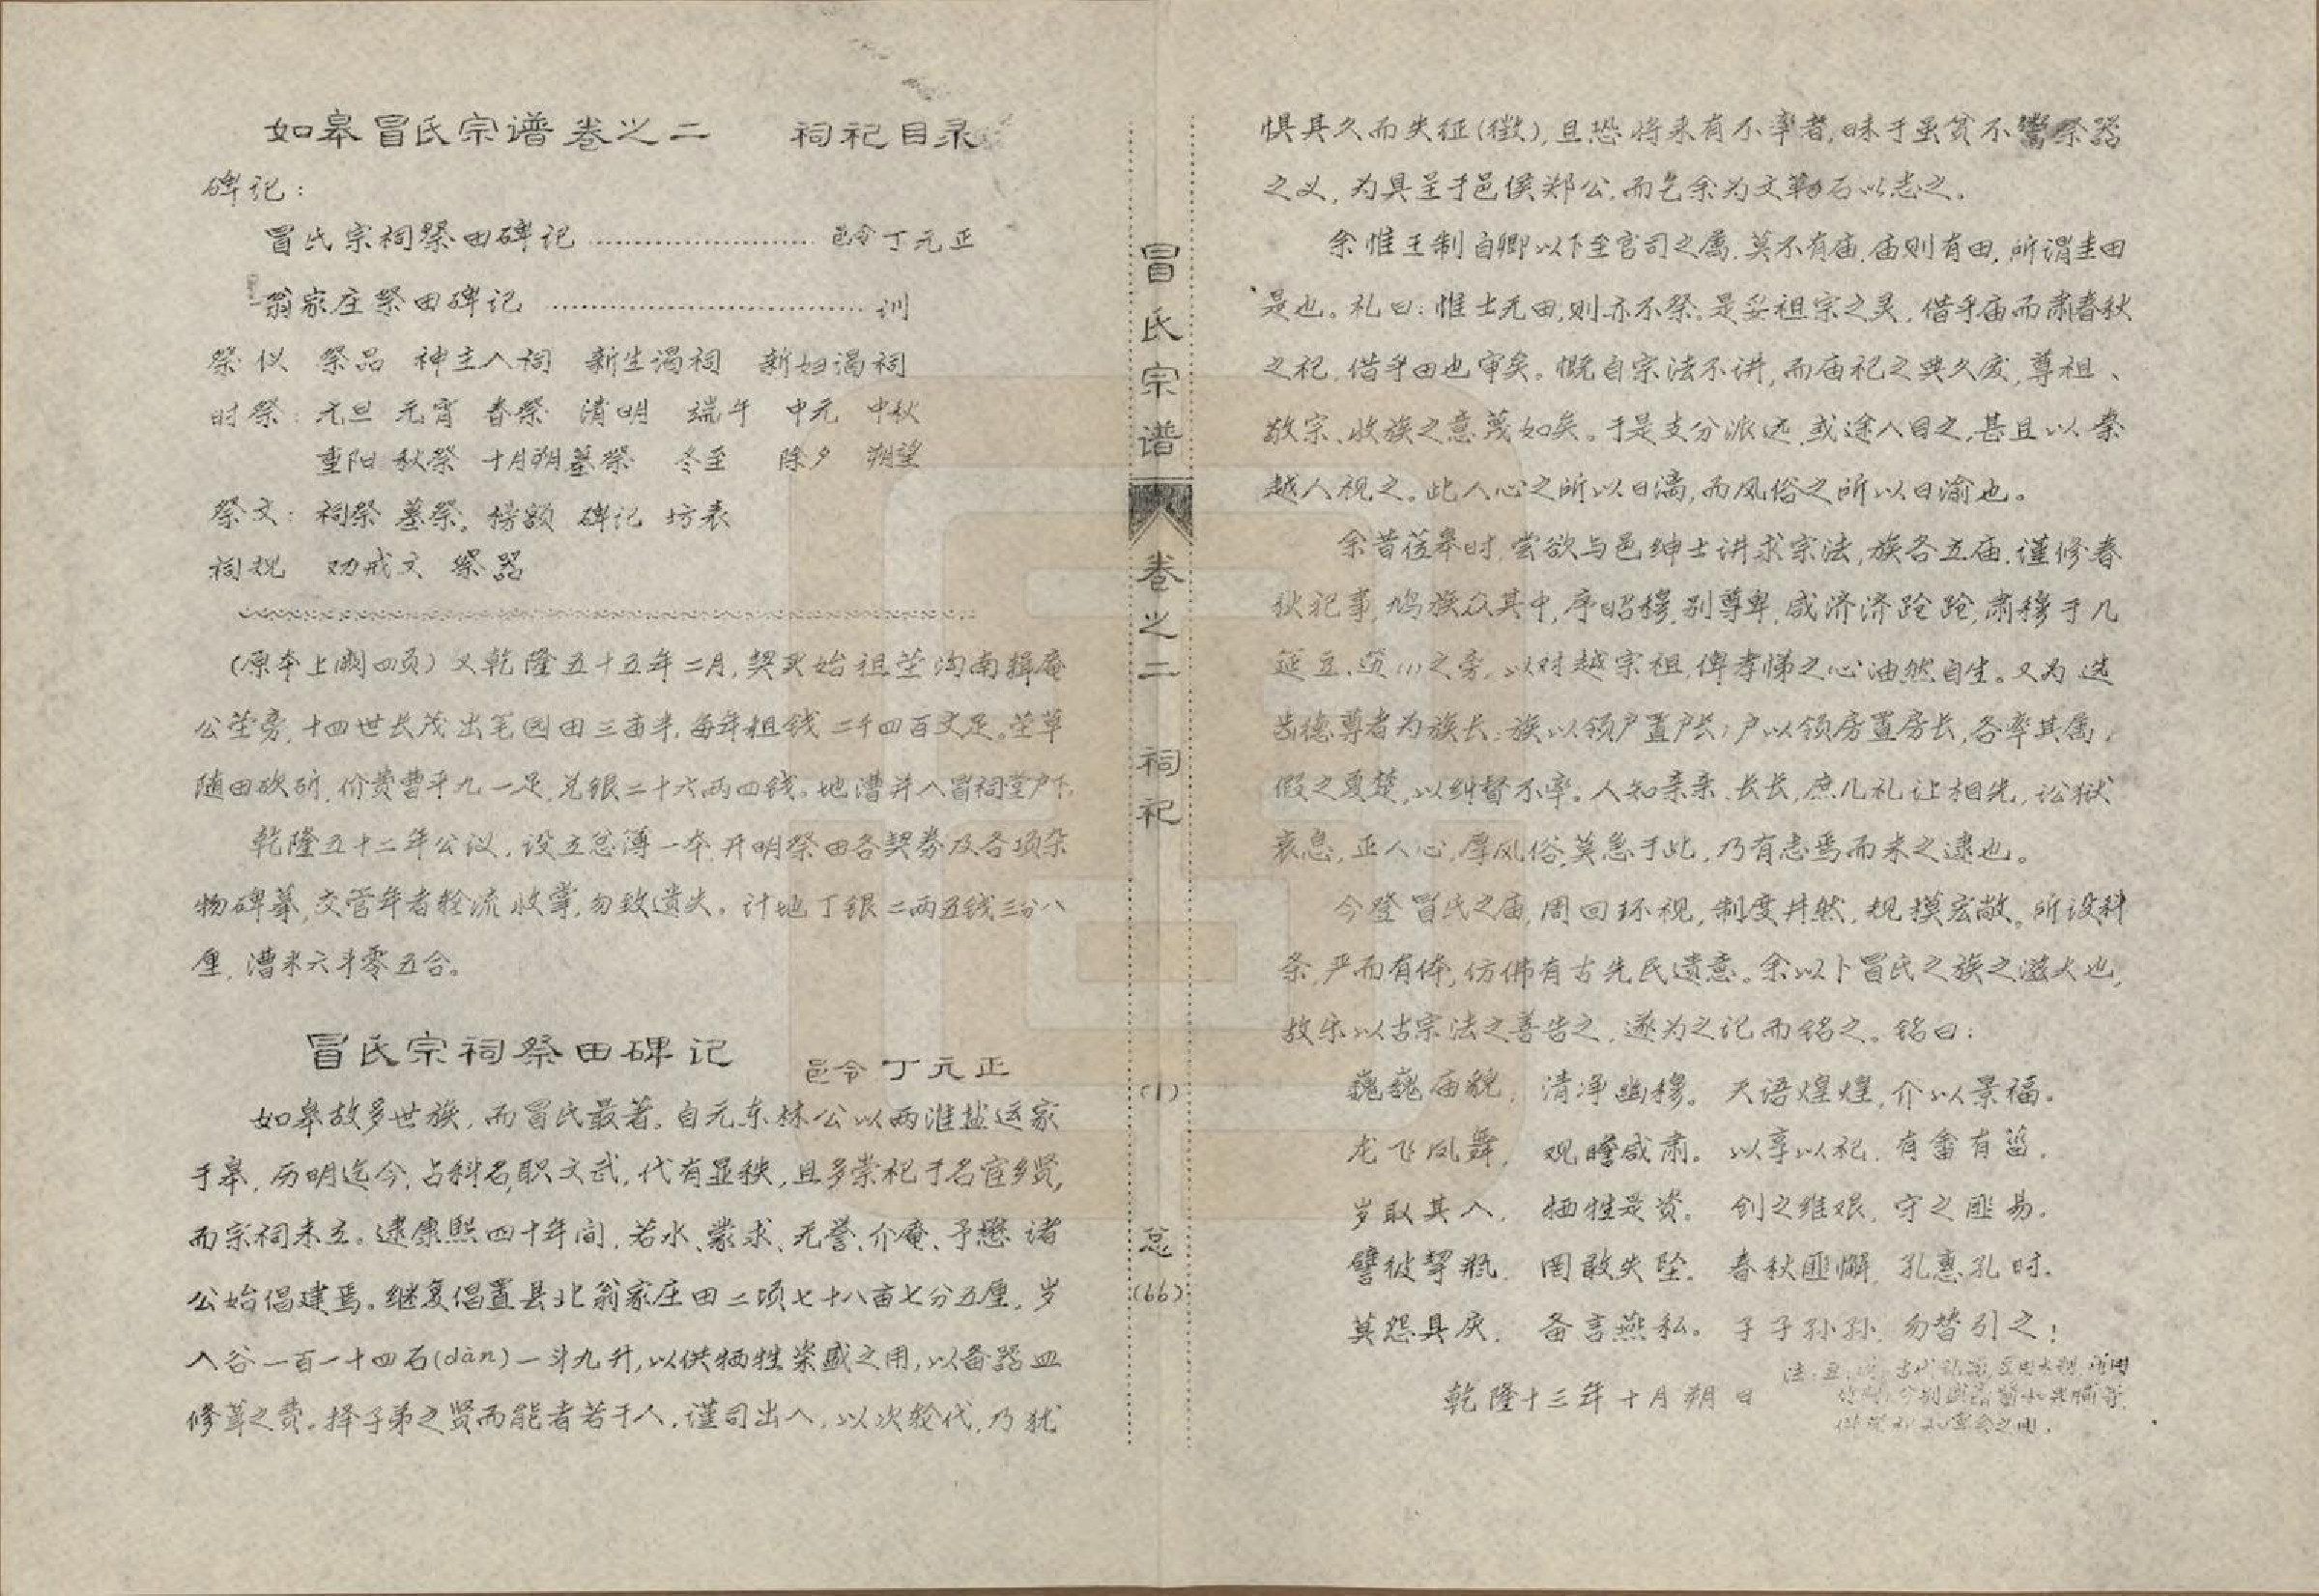 如皋冒氏宗谱卷之二 祠祀目录
碑记:
冒氏宗祠祭田碑记 …………………… 邑令丁元正
翁家庄祭田碑记 …………………………… 训
祭仪 祭品 神主入祠 新生谒祠 新妇谒祠
时祭: 元旦 元宵 春祭 清明 端午 中元 中秋
重阳 秋祭 十月朔墓祭 冬至 除夕 朔望
祭文: 祠祭 墓祭. 榜额 碑记 坊表
祠规 劝戒文 祭器
(原本上阙四页) 又乾隆五十五年二月,契买始祖茔沟南辑庵
公茔旁,十四世长茂出笔园田三亩半,每年租钱二千四百文足。茔草
随田砍斫,价费曹平九一足,兑银二十六两四钱。地漕并入冒祠堂户下.
乾隆五十二年公议,设立总薄一本,开明祭田各契券及各项杂
物碑摹,交管年者轮流收掌,勿致遗失。计地丁银二两五钱三分八
厘,漕米六斗零五合。
冒氏宗祠祭田碑记 邑令丁元正
如皋故多世族,而冒氏最著。自元东林公以两淮盐运家
于皋,历明迄今,占科名,职文武,代有显秩,且多崇祀于名宦乡贤,
而宗祠未立。逮康熙四十年间,若水、蒙求、无誉、介庵、予懋诸
公始倡建焉。继复倡置县北翁家庄田二顷七十八亩七分五厘,岁
入谷一百一十四石(dàn)一斗九升,以供牺牲粢盛之用,以备器皿
修葺之费。择子弟之贤而能者若干人,谨司出入,以次轮代,乃犹
冒氏宗谱 卷之二 祠祀 (1) 总 (66)
惧其久而失征(徵),且恐将来有不率者,昧于虽贫不鬻祭器
之义,为具呈于邑侯郑公,而乞余为文勒石以志之。
余惟王制自卿以下至官司之属,莫不有庙,庙则有田,所谓圭田
是也。礼曰:惟士无田,则亦不祭。是妥祖宗之灵,借乎庙而肃春秋
之祀,借乎田也审矣。慨自宗法不讲,而庙祀之典久废,尊祖、
敬宗、收族之意蔑如矣。于是支分派远,或途人目之,甚且以秦
越人视之。此人心之所以日漓,而风俗之所以日渝也。
余昔莅皋时,尝欲与邑绅士讲求宗法,族各立庙,谨修春
秋祀事,鸠族众其中,序昭穆,别尊卑,咸济济跄跄,肃穆于几
筵豆之旁,以对越宗祖,俾孝悌之心油然自生。又为选
齿德尊者为族长:族以领户置户长;户以领房置房长,各率其属,
假之夏楚,以纠督不率。人知亲亲、长长,庶几礼让相先,讼狱
衰息,正人心,厚风俗,莫急于此,乃有志焉而未之逮也。
今登冒氏之庙,周回环视,制度井然,规模宏敞。所设科
条,严而有体,仿佛有古先民遗意。余以卜冒氏之族之滋大也,
故乐以古宗法之善告之,遂为之记而铭之。铭曰:
巍巍庙貌, 清净幽穆。 天语煌煌,介以景福.
龙飞凤舞, 观瞻咸肃。 以享以祀,有畬有菑.
岁取其入, 牺牲是资。 创之维艰,守之匪易.
譬彼挈瓶, 罔敢失坠。 春秋匪懈,孔惠孔时.
莫怨具庆, 备言燕私。 子子孙孙,勿替引之!
乾隆十三年十月朔日